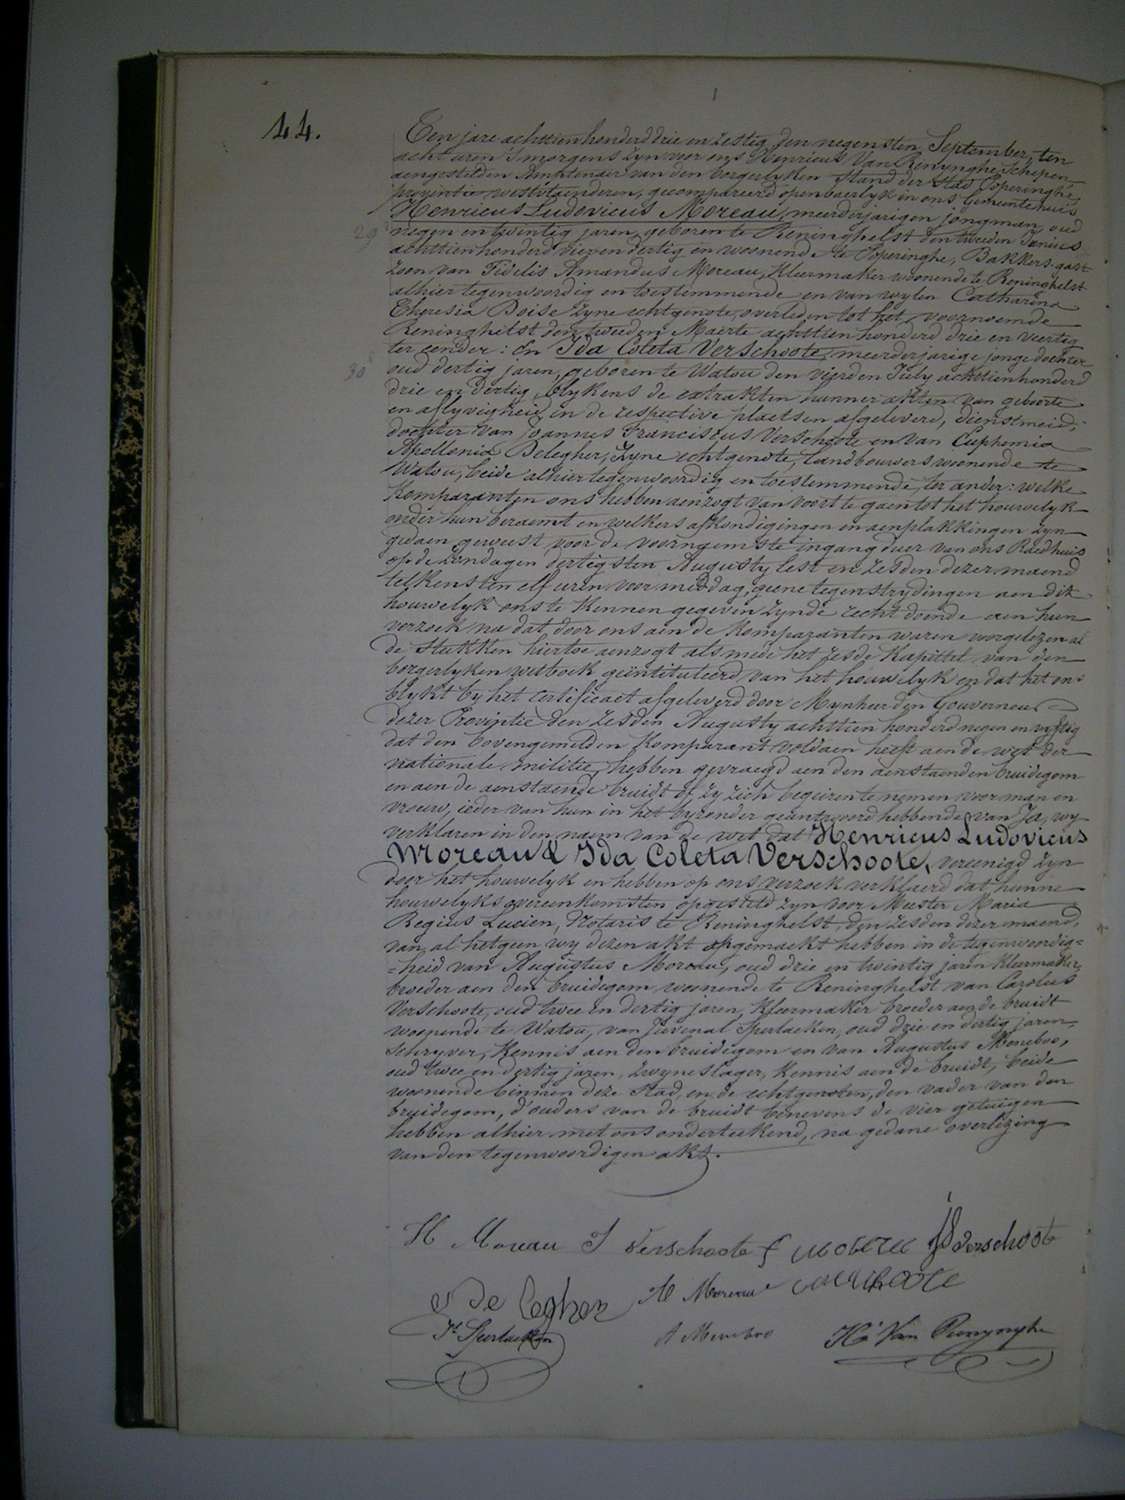 44.
Een jare achttienhonderd drie en zestig den negensten September, ten
acht uren 's morgens zyn voor ons Henricus Van Renynghe Schepen
aengestelden Amhtenaer van den borgerlyken stand der stad Poperinghe,
provintie westvlaenderen, gecompareerd openbaerlyk in ons Gemeentehuis
Henricus Ludovicus Moreau, meerderjarigen jongman, oud
29
negen en twintig jaren, geboren te Reninghelst den tweeden Junius
achttienhonderd vier en dertig en woonende te Poperinghe, Bakkers gast
zoon van Fidelis Amandus Moreau, Kleermaker woonende te Reninghelst
alhier tegenwoordig en toestemmende en van wylen Catharina
Theresia Boise zyne echtgenote, overleden tot het voornoemde
Reninghelst den tweeden Maerte achttien honderd drie en veertig
ter eender: En Ida Coleta Verschoote, meerderjarige jonge dochter
30
oud dertig jaren, geboren te Watou den vijrden July achttienhonderd
drie en dertig, blykens de extrakten hunner akten van geboorte
en aflyvigheid in de respective plaetsen afgeleverd, dienstmeid,
dochter van Joannes Franciscus Verschoote en van Euphemia
Apollonia Delegher, zyne echtgenote, landbouwers woonende te
Watou, beide alhier tegenwoordig en toestemmende, ter ander: welke
Komparanten ons hebben aenzogt van voort te gaen tot het houwelyk
onder hun beraemt en welkers afkondigingen en aenplakkingen zyn
gedaen geweest voor de voornaemste ingang duer van ons Raedhuis
op de zondagen dertigsten Augusty lest en zesden dezer maend
telkens ten elf uren voor middag, geene tegenstrydingen aen dit
houwelyk ons te kennen gegeven zynde recht doende aen hun
verzoek na dat door ons aen de Komparanten waren voorgelezen al
de Stukken hiertoe aenzogt als mede het zesde Kapittel van den
borgerlyken wetboek geïntituleerd, van het houwelyk en dat het ons
blykt by het certificaet afgeleverd door Mynheer den Gouverneur
dezer Provintie den zesden Augusty achttien honderd negen en vyftig
dat den bovengemelden Komparant voldaen heeft aen de wet der
nationale militie, hebben gevraegd aen den aenstaenden bruidegom
en aen de aenstaende bruidt of zy zich begeiren te nemen voor man en
vrouw, ieder van hun in het byzonder geantwoord hebbende van Ja, wy
verklaren in den naem van de wet dat Henricus Ludovicus
Moreau & Ida Coleta Verschoote, vereenigd zyn
door het houwelyk en hebben op ons verzoek verklaerd dat hunne
houwelyks overeenkomsten opgesteld zyn voor Meester Maria
Regius Lucien, Notaris te Reninghelst, den zesden dezer maend,
van al hetgeen wy dezen akt opgemaekt hebben in de tegenwoordig=
=heid van Augustus Moreau, oud drie en twintig jaren kleermaker,
broeder aen den bruidegom, woonende te Reninghelst van Carolus
Verschoote, oud twee en dertig jaren, Kleermaker broeder aen de bruidt
woonende te Watou, van Juvenal Sperlaeken, oud drie en dertig jaren,
schryver, Kennis aen den bruidegom en van Augustus Moneboo,
oud twee en dertig jaren, zwyneslager, kennis aen de bruidt, beide
woonende binnen deze Stad, en de echtgenoten, den vader van den
bruidegom, d'ouders van de bruidt benevens de vier getuigen
hebben alhier met ons onderteekend, na gedane overlezing
van den tegenwoordigen akt.
H Moreau I Verschoote f Verschoote
De Legher Moreau
Jl Sperlaeken A Moneboo He Van Renynghe